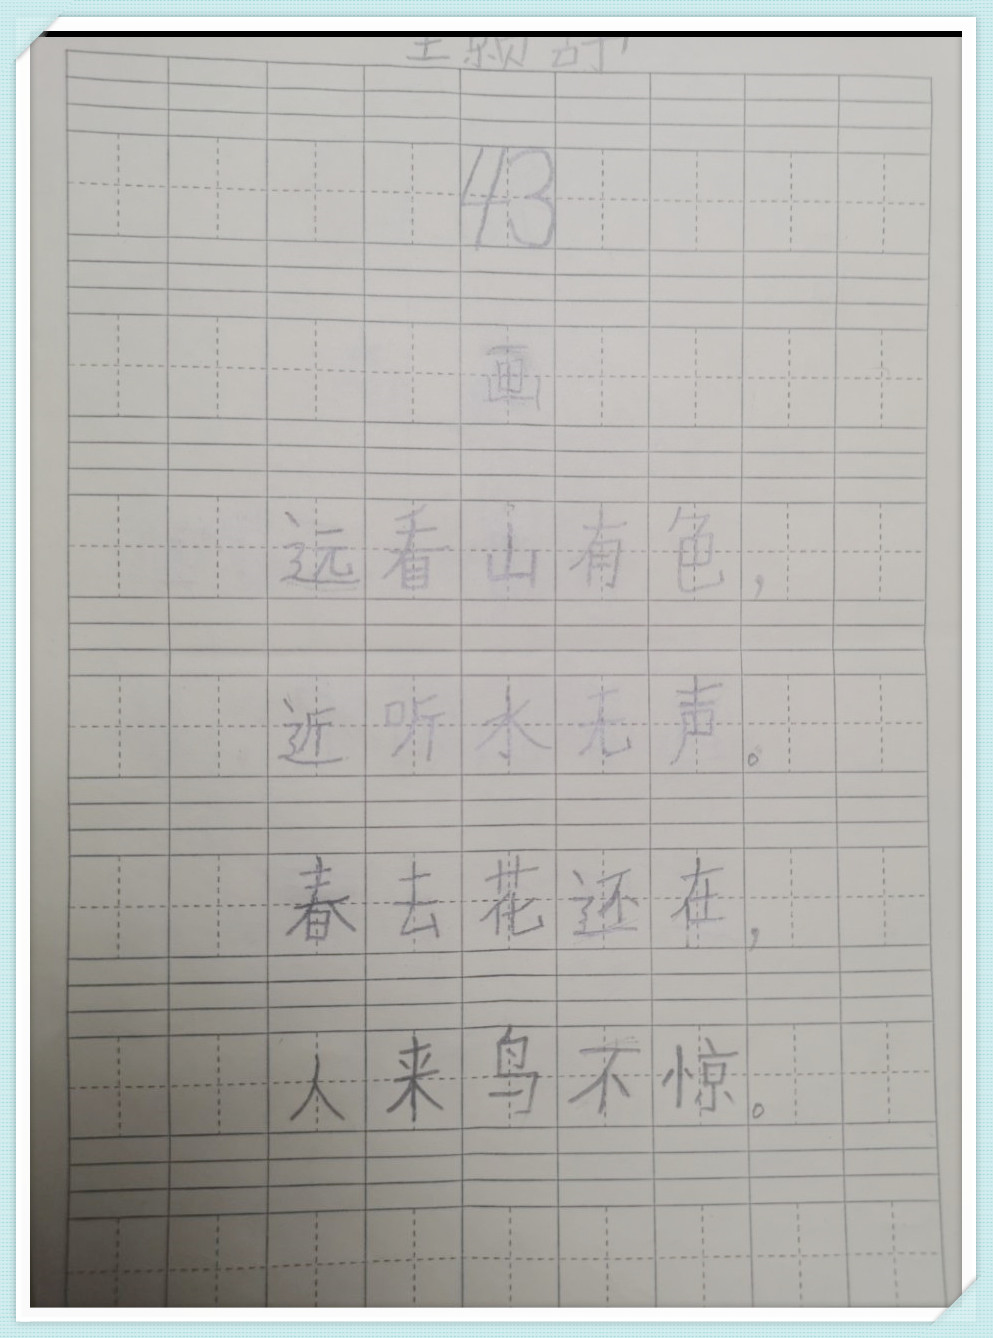 43
画
远看山有色，
近听水无声。
春去花还在，
人来鸟不惊。